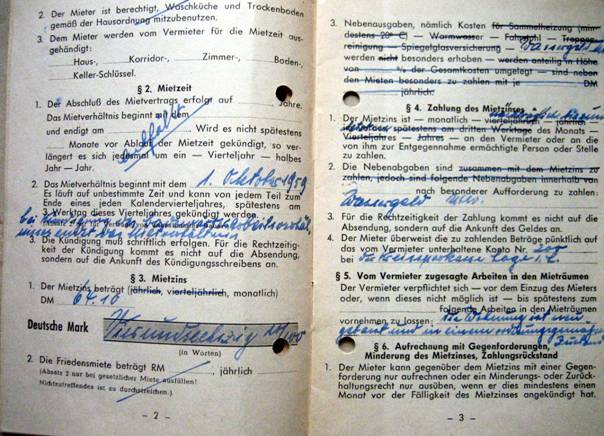 2. Der Mieter ist berechtigt, Waschküche und Trockenboden
gemäß der Hausordnung mitzubenutzen.
3. Dem Mieter werden vom Vermieter für die Mietzeit ausgehändigt:
Haus-, Korridor-, Zimmer-, Boden-,
Keller-Schlüssel.
§ 2. Mietzeit
1. Der Abschluß des Mietvertrags erfolgt auf Jahre.
Das Mietverhältnis beginnt mit dem
und endigt am Wird es nicht spätestens
Monate vor Ablauf der Mietzeit gekündigt, so ver-
längert es sich jedesmal um ein — Vierteljahr — halbes
Jahr — Jahr.
entfällt
2. Das Mietverhältnis beginnt mit dem 1. Oktober 1959
Es läuft auf unbestimmte Zeit und kann von jedem Teil zum
Ende eines jeden Kalendervierteljahres, spätestens am
3. Werktag dieses Vierteljahres gekündigt werden.
3. Die Kündigung muß schriftlich erfolgen. Für die Rechtzeitig-
keit der Kündigung kommt es nicht auf die Absendung,
sondern auf die Ankunft des Kündigungsschreibens an.
§ 3. Mietzins
1. Der Mietzins beträgt (jährlich, vierteljährlich, monatlich)
DM 64.10
Deutsche Mark
(in Worten)
2. Die Friedensmiete beträgt RM , jährlich
(Absatz 2 nur bei gesetzlicher Miete ausfüllen!
Nichtzutreffendes ist zu durchstreichen.)
– 2 –
3. Nebenausgaben, nämlich Kosten für Sammelheizung (min-
destens 20° C) — Warmwasser — Fahrstuhl — Treppen-
reinigung — Spiegelglasversicherung —
werden nicht besonders erhoben — werden anteilig in Höhe
von % der Gesamtkosten umgelegt — sind neben
den Mieten besonders zu zahlen mit je DM
jährlich.
§ 4. Zahlung des Mietzinses
1. Der Mietzins ist — monatlich — vierteljährlich — jährlich
spätestens am dritten Werktage des Monats —
Vierteljahres — Jahres — an den Vermieter oder an die
von ihm zur Entgegennahme ermächtigte Person oder Stelle
zu zahlen.
2. Die Nebenabgaben sind zusammen mit dem Mietzins zu
zahlen, jedoch sind folgende Nebenabgaben innerhalb von
nach besonderer Aufforderung zu zahlen:
3. Für die Rechtzeitigkeit der Zahlung kommt es nicht auf die
Absendung, sondern auf die Ankunft des Geldes an.
4. Der Mieter überweist die zu zahlenden Beträge pünktlich auf
das vom Vermieter unterhaltene Konto Nr.
bei
§ 5. Vom Vermieter zugesagte Arbeiten in den Mieträumen
Der Vermieter verpflichtet sich — vor dem Einzug des Mieters
oder, wenn dieses nicht möglich ist — bis spätestens zum
folgende Arbeiten in den Mieträumen
vornehmen zu lassen:
§ 6. Aufrechnung mit Gegenforderungen,
Minderung des Mietzinses, Zahlungsrückstand
1. Der Mieter kann gegenüber dem Mietzins mit einer Gegen-
forderung nur aufrechnen oder ein Minderungs- oder Zurück-
haltungsrecht nur ausüben, wenn er dies mindestens einen
Monat vor der Fälligkeit des Mietzinses angekündigt hat.
– 3 –